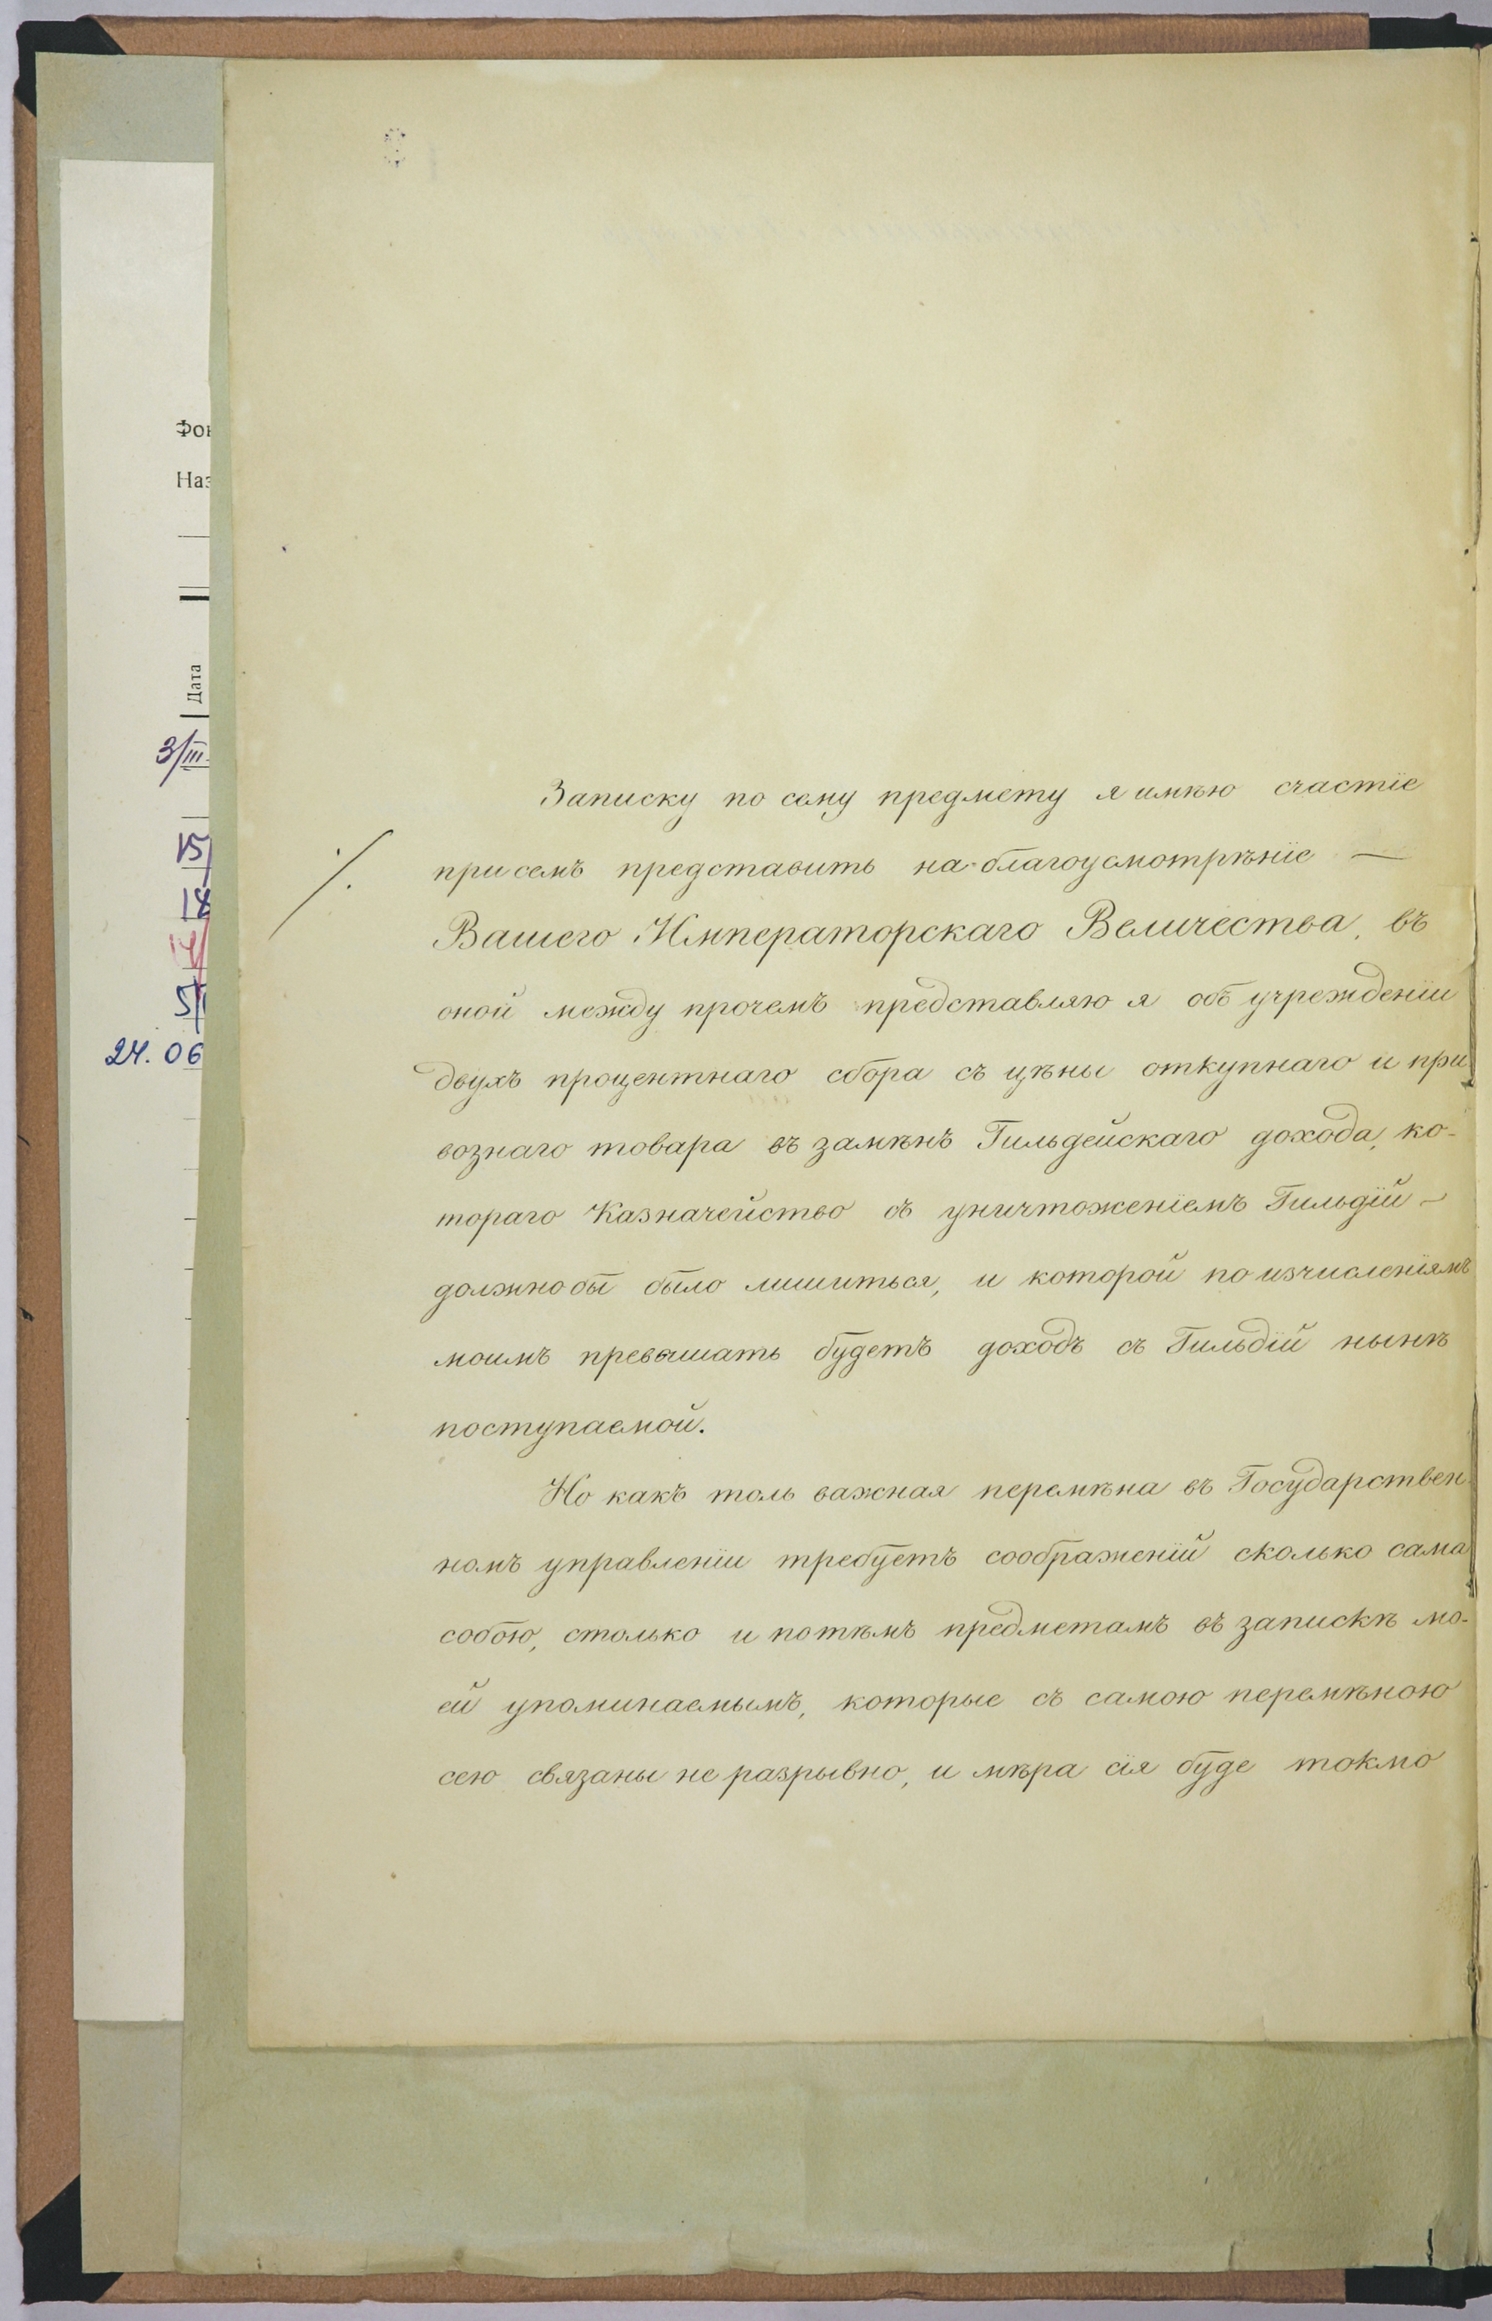 Фон
Наз
Дата
3/III
15/
18
14/
5/I
24.06
Записку по сему предмету я имѣю счастіе
при семъ представить на благоусмотрѣніе —
Вашего Императорскаго Величества, въ
оной между прочемъ представляю я объ учрежденіи
двухъ процентнаго сбора съ цѣны откупнаго и при
вознаго товара въ замѣнъ Гильдейскаго дохода, ко-
тораго Казначейство съ уничтоженіемъ Гильдій —
должно бы было лишиться, и которой по изчисленіямъ
моимъ превышать будетъ доходъ съ Гильдій нынѣ
поступаемой.
Но какъ толь важная перемѣна въ Государствен
номъ управленіи требуетъ соображеній сколько сама
собою, столько и потѣмъ предметамъ въ запискѣ мо-
ей упоминаемымъ, которые съ самою перемѣною
сею связаны не разрывно, и мѣра сія буде токмо